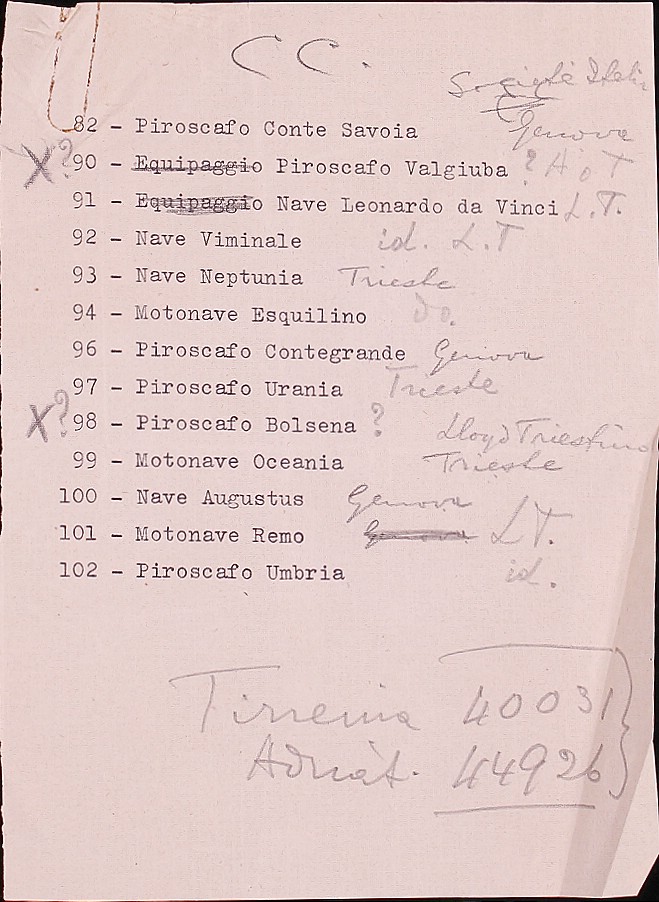 CC.
Società Italia
82 - Piroscafo Conte Savoia Genova
X? 90 - Equipaggio Piroscafo Valgiuba ?
91 - Equipaggio Nave Leonardo da Vinci L.T.
92 - Nave Viminale id. L.T
93 - Nave Neptunia Trieste
94 - Motonave Esquilino do.
96 - Piroscafo Contegrande Genova
97 - Piroscafo Urania Trieste
X? 98 - Piroscafo Bolsena ? Lloyd Triestino
99 - Motonave Oceania Trieste
100 - Nave Augustus Genova
101 - Motonave Remo Genova LT.
102 - Piroscafo Umbria id.
Tirrenia 40031
Adriat. 44926